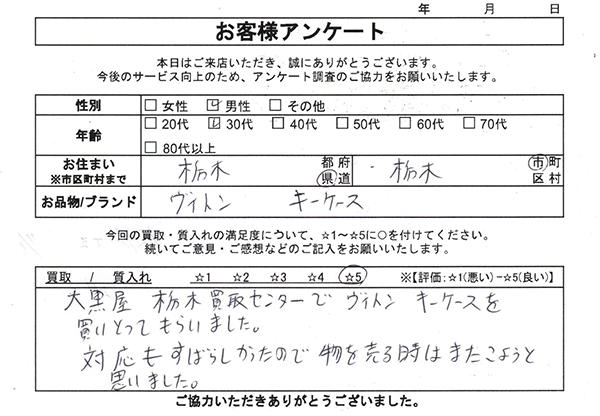 年　月　日
お客様アンケート
本日はご来店いただき、誠にありがとうございます。
今後のサービス向上のため、アンケート調査のご協力をお願いいたします。
性別 □ 女性 ☑ 男性 □ その他
年齢 □ 20代 ☑ 30代 □ 40代 □ 50代 □ 60代 □ 70代
□ 80代以上
お住まい ※市区町村まで 栃木 都府県道 栃木 市町区村
お品物/ブランド ヴィトン キーケース
今回の買取・質入れの満足度について、☆1～☆5に○を付けてください。
続いてご意見・ご感想などのご記入をお願いいたします。
買取 / 質入れ ☆1 ☆2 ☆3 ☆4 ☆5 ※【評価:☆1(悪い)-☆5(良い)】
大黒屋 栃木買取センターで ヴィトン キーケースを
買いとってもらいました。
対応もすばらしかったので 物を売る時はまたこようと
思いました。
ご協力いただきありがとうございました。